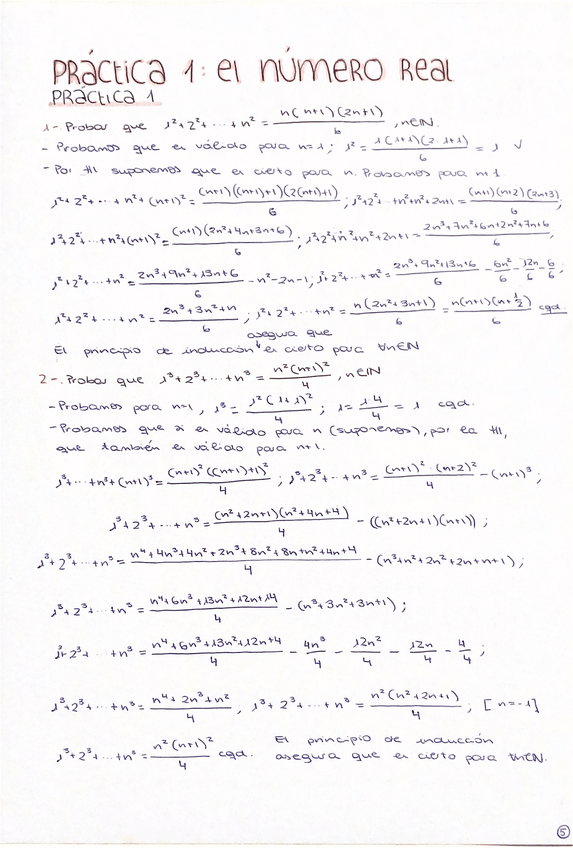 Práctica 1: el número Real
Práctica 1
1-. Probar que 1²+2²+...+n² = n(n+1)(2n+1)/6, n∈IN
- Probamos que es válido para n=1; 1² = 1(1+1)(2·1+1)/6 = 1 √
- Por HI suponemos que es cierto para n. Probamos para n+1.
1²+2²+...+n²+(n+1)² = (n+1)((n+1)+1)(2(n+1)+1)/6; 1²+2²+...+n²+n²+2n+1 = (n+1)(n+2)(2n+3)/6;
1²+2²+...+n²+(n+1)² = (n+1)(2n²+4n+3n+6)/6; 1²+2²+n²+n²+2n+1 = 2n³+7n²+6n+2n²+7n+6/6;
1²+2²+...+n² = 2n³+9n²+13n+6/6 - n²-2n-1; 1²+2²+...+n² = 2n³+9n²+13n+6/6 - 6n²/6 - 12n/6 - 6/6;
1²+2²+...+n² = 2n³+3n²+n/6; 1²+2²+...+n² = n(2n²+3n+1)/6 = n(n+1)(n+1/2)/6 cqd.
asegura que
El principio de inducción es cierto para ∀n∈N
2-. Probar que 1³+2³+...+n³ = n²(n+1)²/4, n∈IN
- Probamos para n=1, 1³ = 1²(1+1)²/4; 1 = 1·4/4 = 1 cqd.
- Probamos que si es válido para n (suponemos), por la HI,
que también es válido para n+1.
1³+...+n³+(n+1)³ = (n+1)²((n+1)+1)²/4; 1³+2³+...+n³ = (n+1)²·(n+2)²/4 - (n+1)³;
1³+2³+...+n³ = (n²+2n+1)(n²+4n+4)/4 - ((n²+2n+1)(n+1));
1³+2³+...+n³ = n⁴+4n³+4n²+2n³+8n²+8n+n²+4n+4/4 - (n³+n²+2n²+2n+n+1);
1³+2³+...+n³ = n⁴+6n³+13n²+12n+14/4 - (n³+3n²+3n+1);
1³+2³+...+n³ = n⁴+6n³+13n²+12n+4/4 - 4n³/4 - 12n²/4 - 12n/4 - 4/4;
1³+2³+...+n³ = n⁴+2n³+n²/4, 1³+2³+...+n³ = n²(n²+2n+1)/4; [n=-1]
1³+2³+...+n³ = n²(n+1)²/4 cqd. El principio de inducción
asegura que es cierto para ∀n∈N.
5